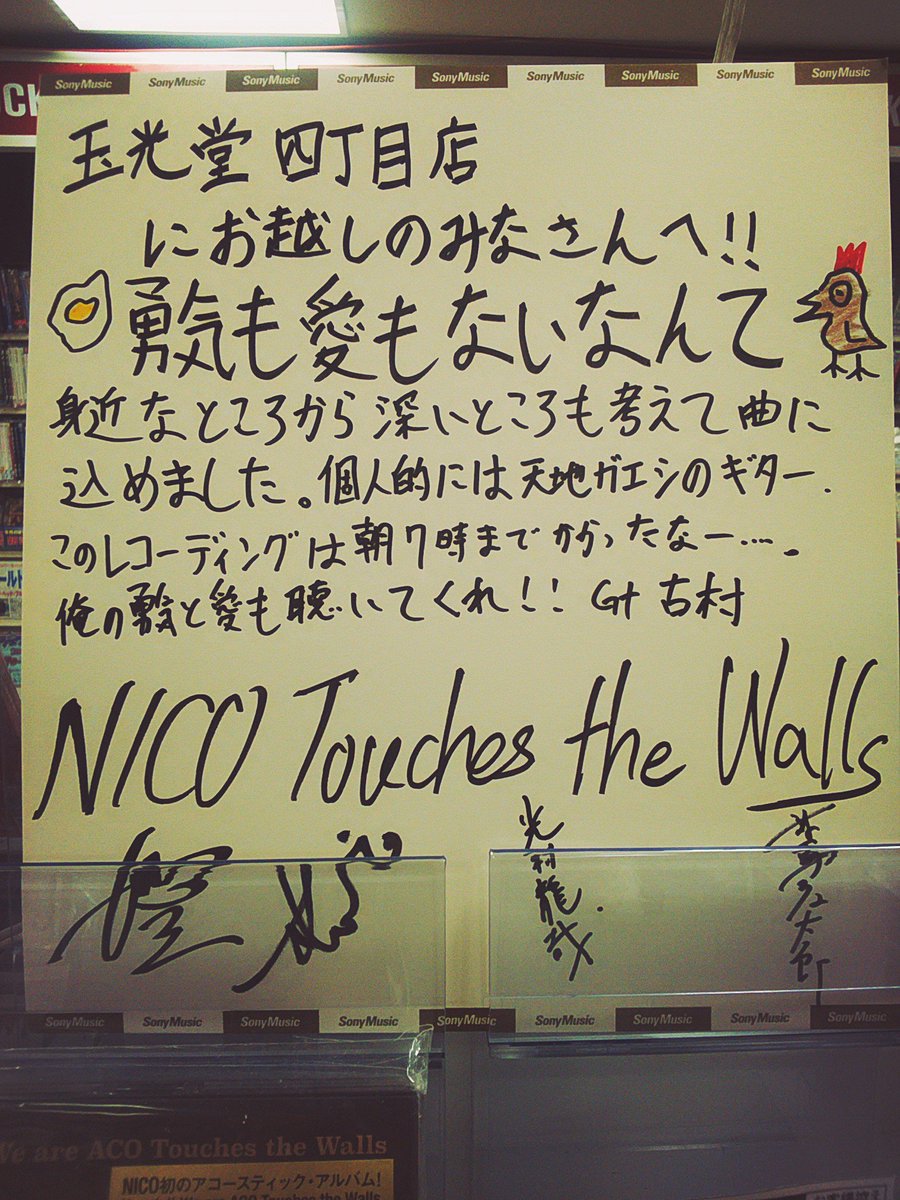 SonyMusic SonyMusic SonyMusic SonyMusic SonyMusic SonyMusic SonyMusic SonyMusic SonyMusic
玉光堂 四丁目店
にお越しのみなさんへ!!
勇気も愛もないなんて
身近なところから深いところも考えて曲に
込めました。個人的には天地ガエシのギター.
このレコーディングは朝7時までかかったなー…..
俺の勇気と愛も聴いてくれ!! Gt 古村
NICO Touches the Walls
光村龍哉
SonyMusic SonyMusic SonyMusic SonyMusic SonyMusic SonyMusic SonyMusic SonyMusic SonyMusic
We are ACO Touches the Walls
NICO初のアコースティック・アルバム!
ACO Touches the Walls